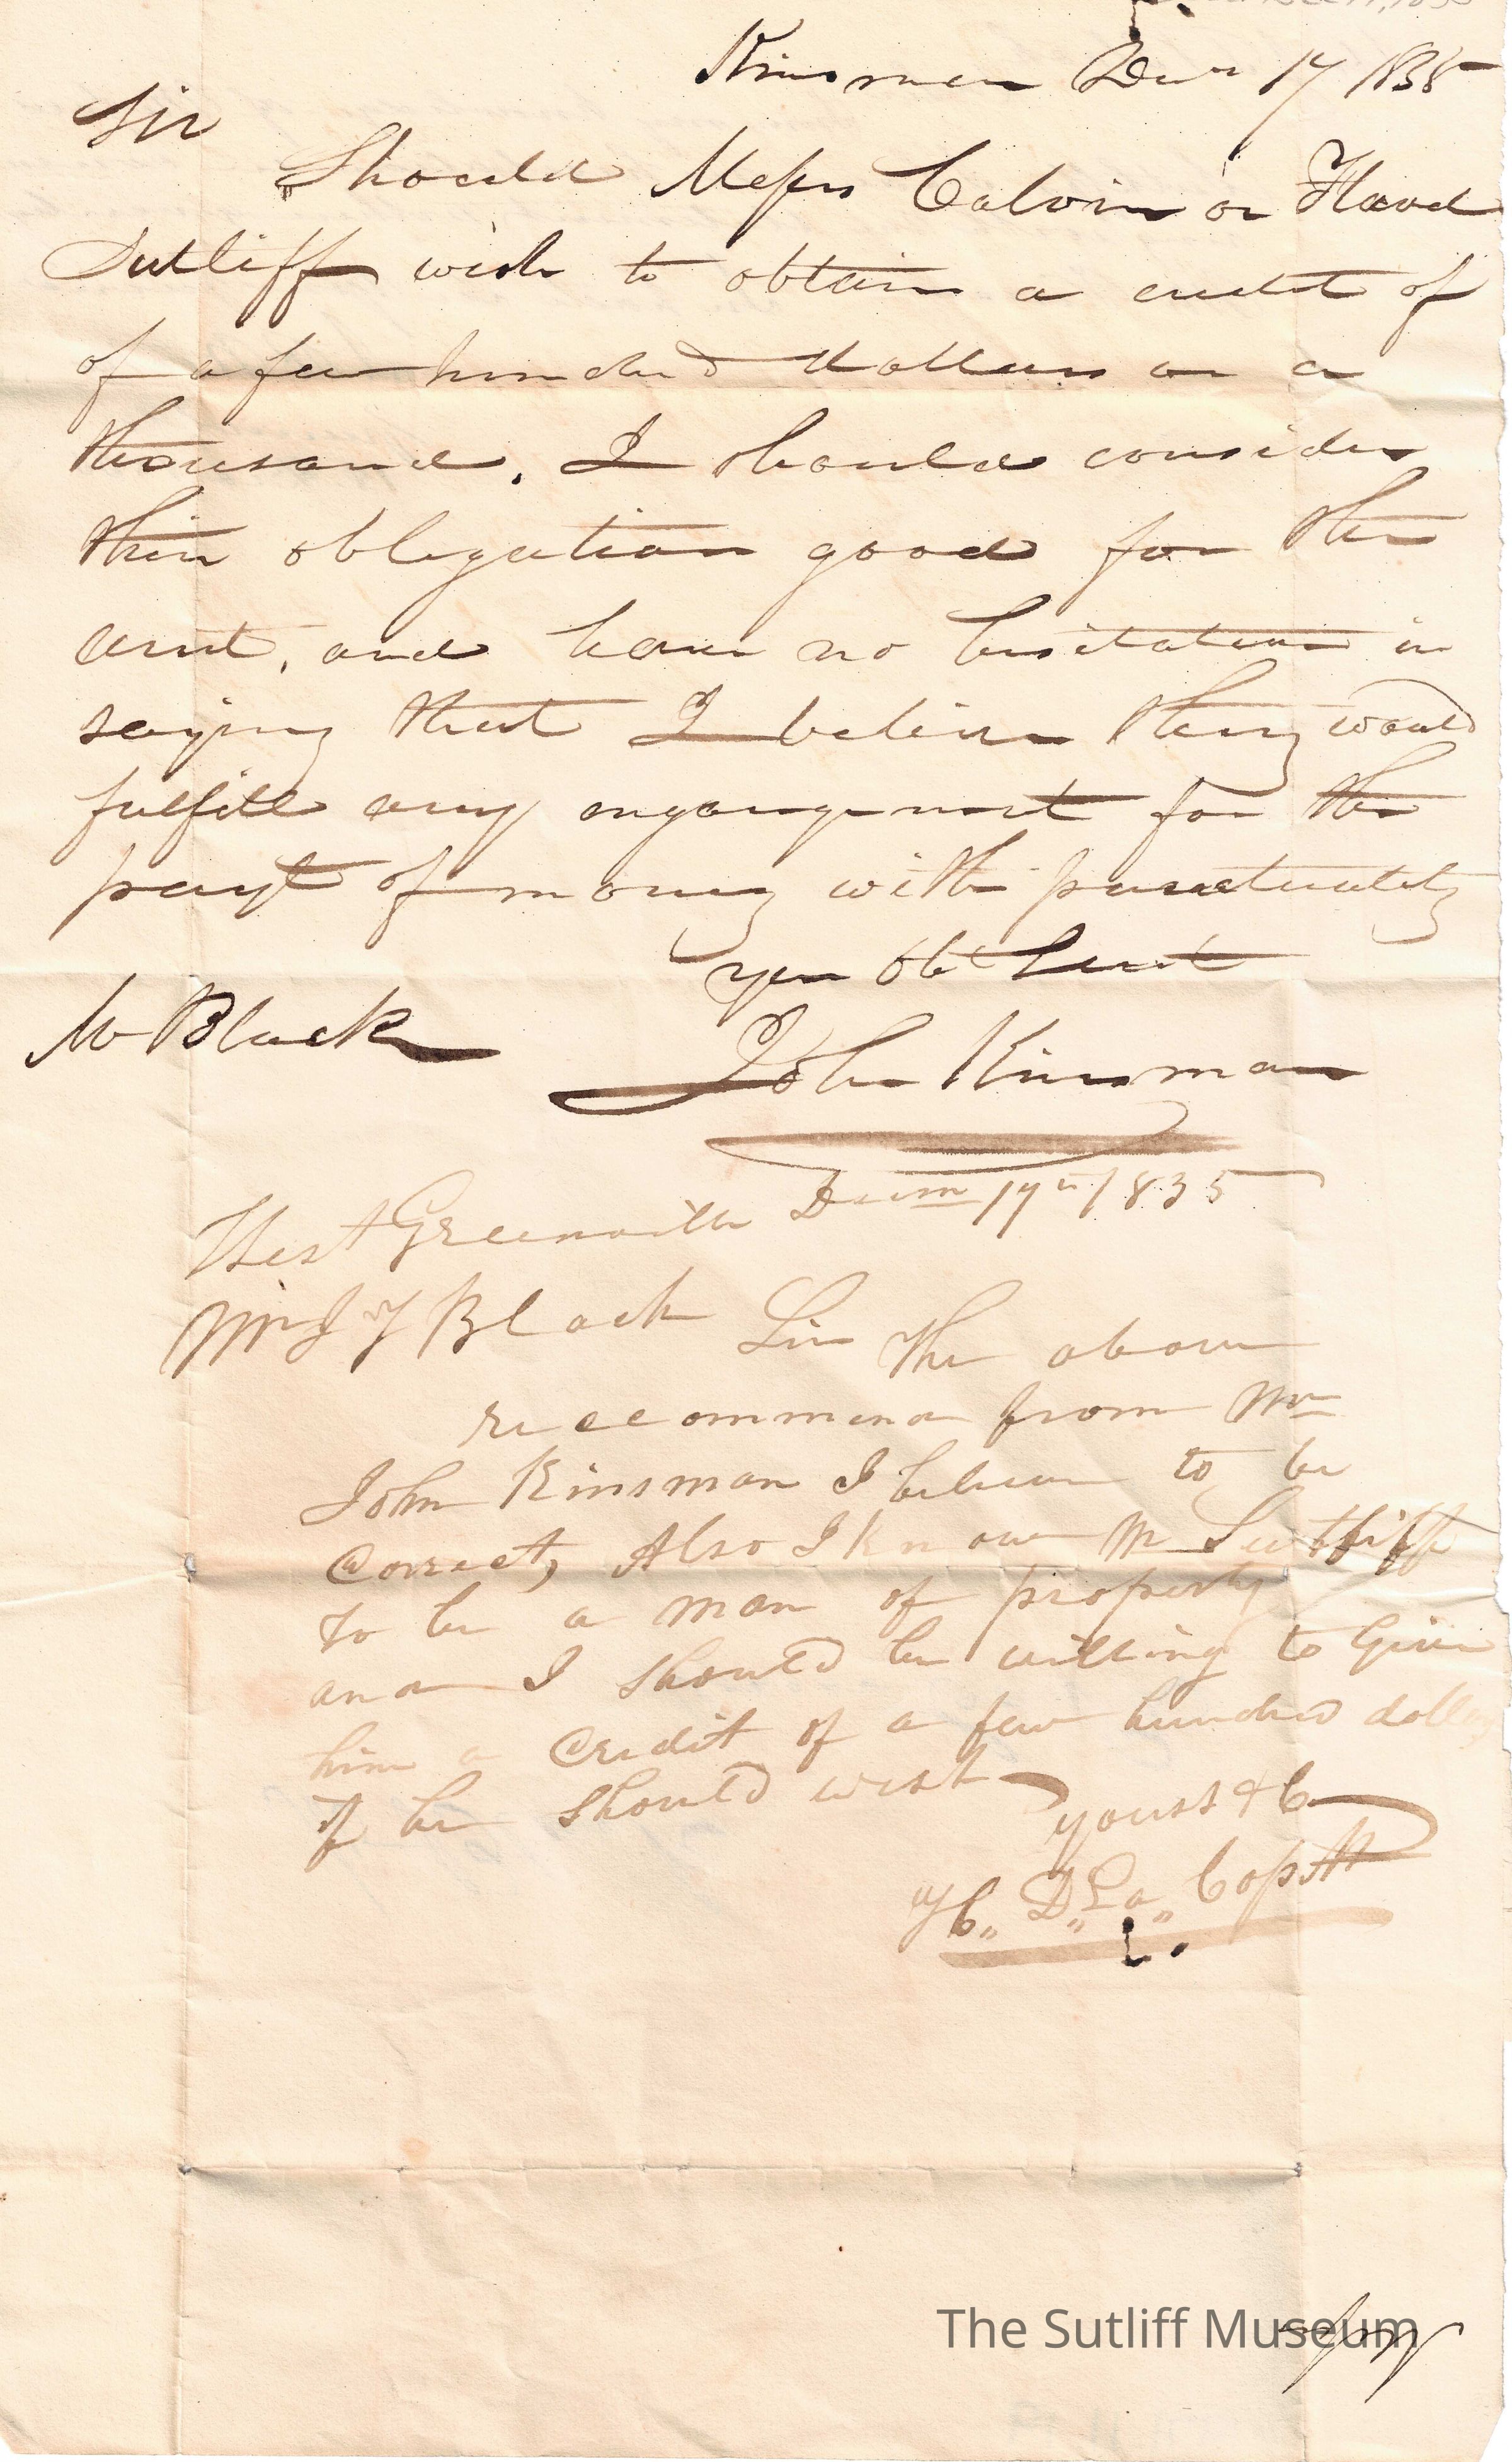 Kinsman Decr 17 1835
Sir
Should Messrs Calvin or Flavel
Sutliff wish to obtain a credit of
of a few hundred dollars or a
thousand, I should consider
their obligation good for the
amt, and have no hesitation in
saying that I believe they would
fulfill any engagement for the
payt of money with punctuality
your Obt Servt
Mr Black
John Kinsman
West Greenville Decem 17th 1835
Mr J Y Black Sir The above
reccommend from Mr
John Kinsman I believe to be
Correct, Also I know Mr Sutfliff
to be a man of property
and I should be willing to Give
him a Credit of a few hundred dollars
if he should wish
yours & C
D La
The Sutliff Museum